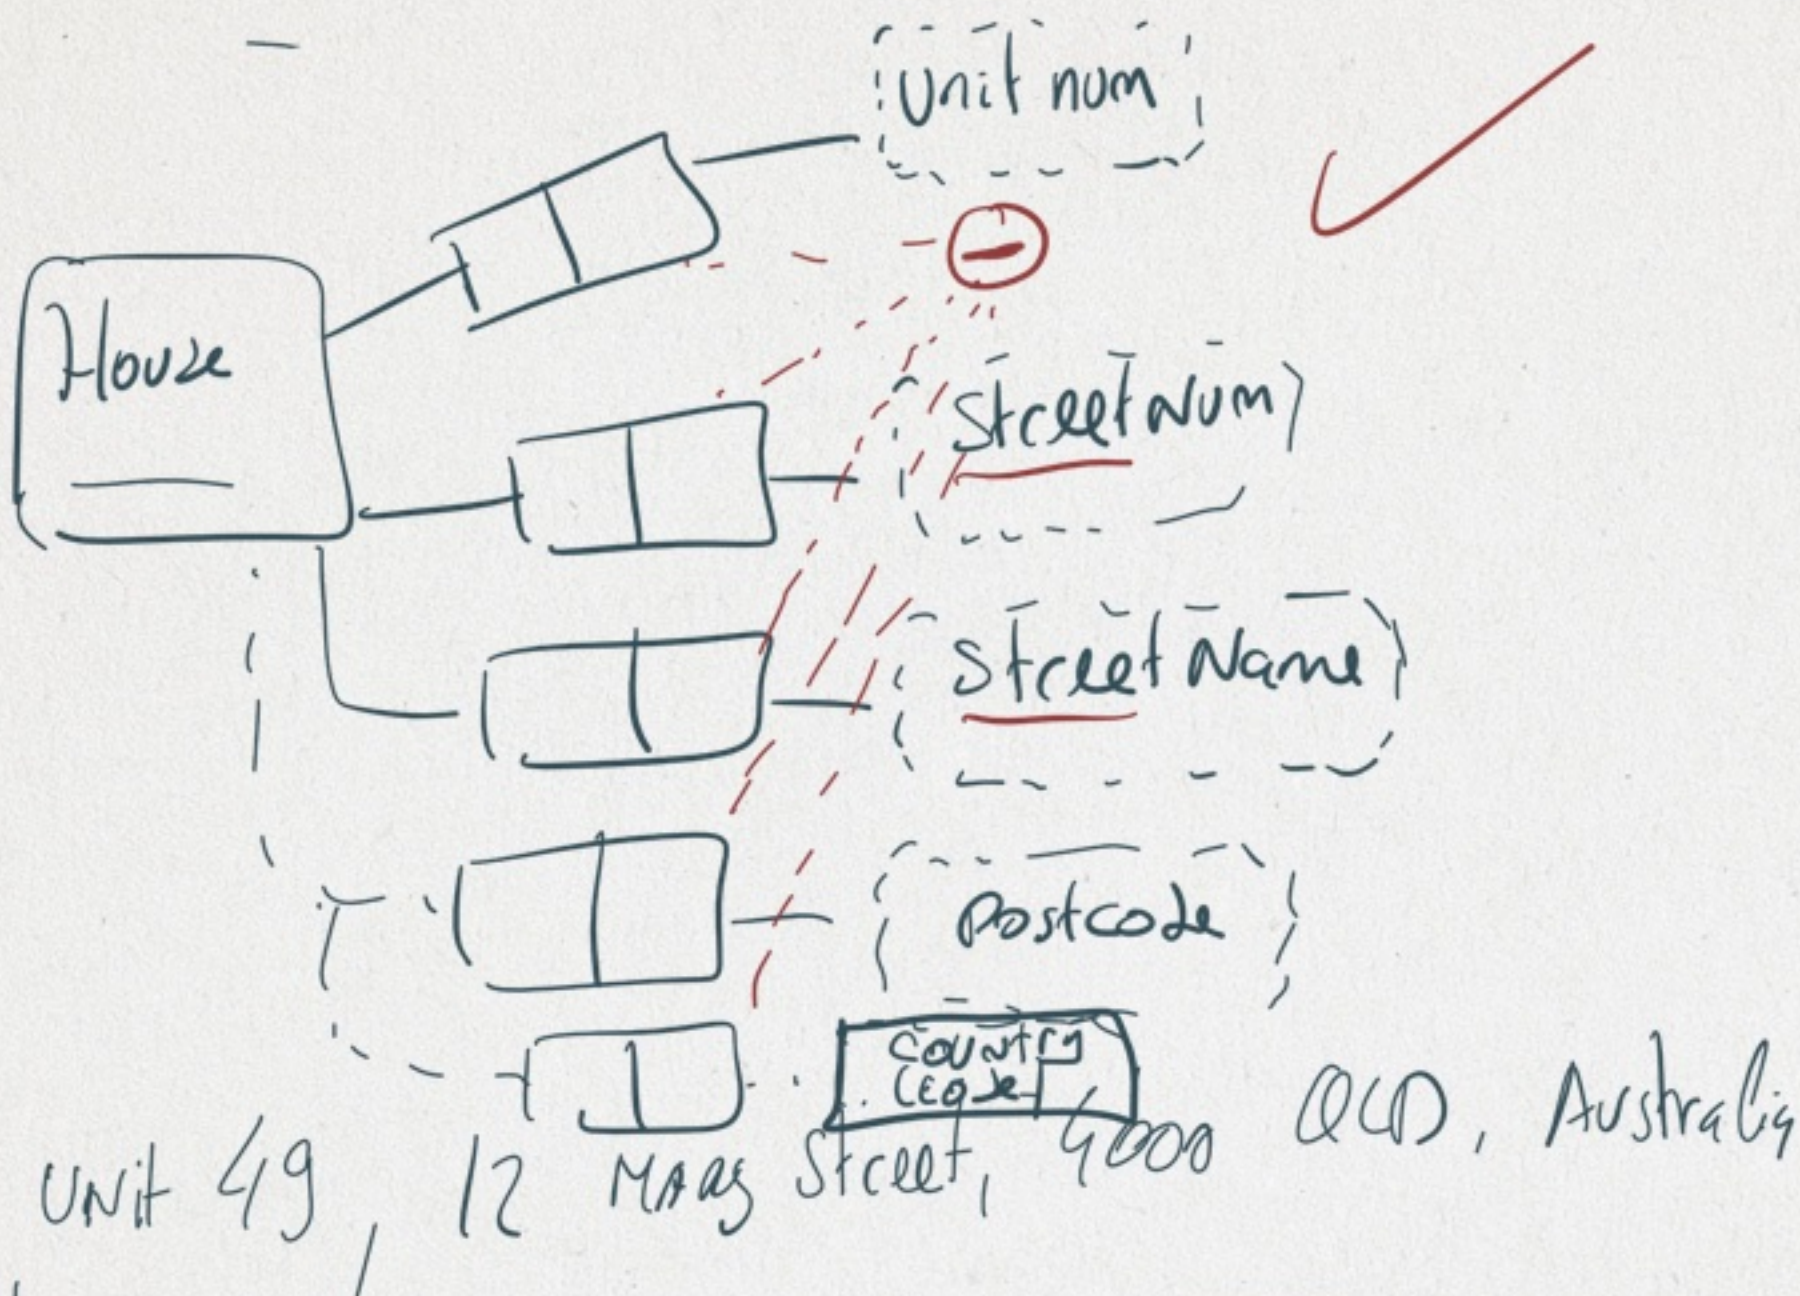 Unit num
House
Street Num
Street Name
Postcode
Country
Code
Unit 49, 12 MARY Street, 4000 QLD, Australia